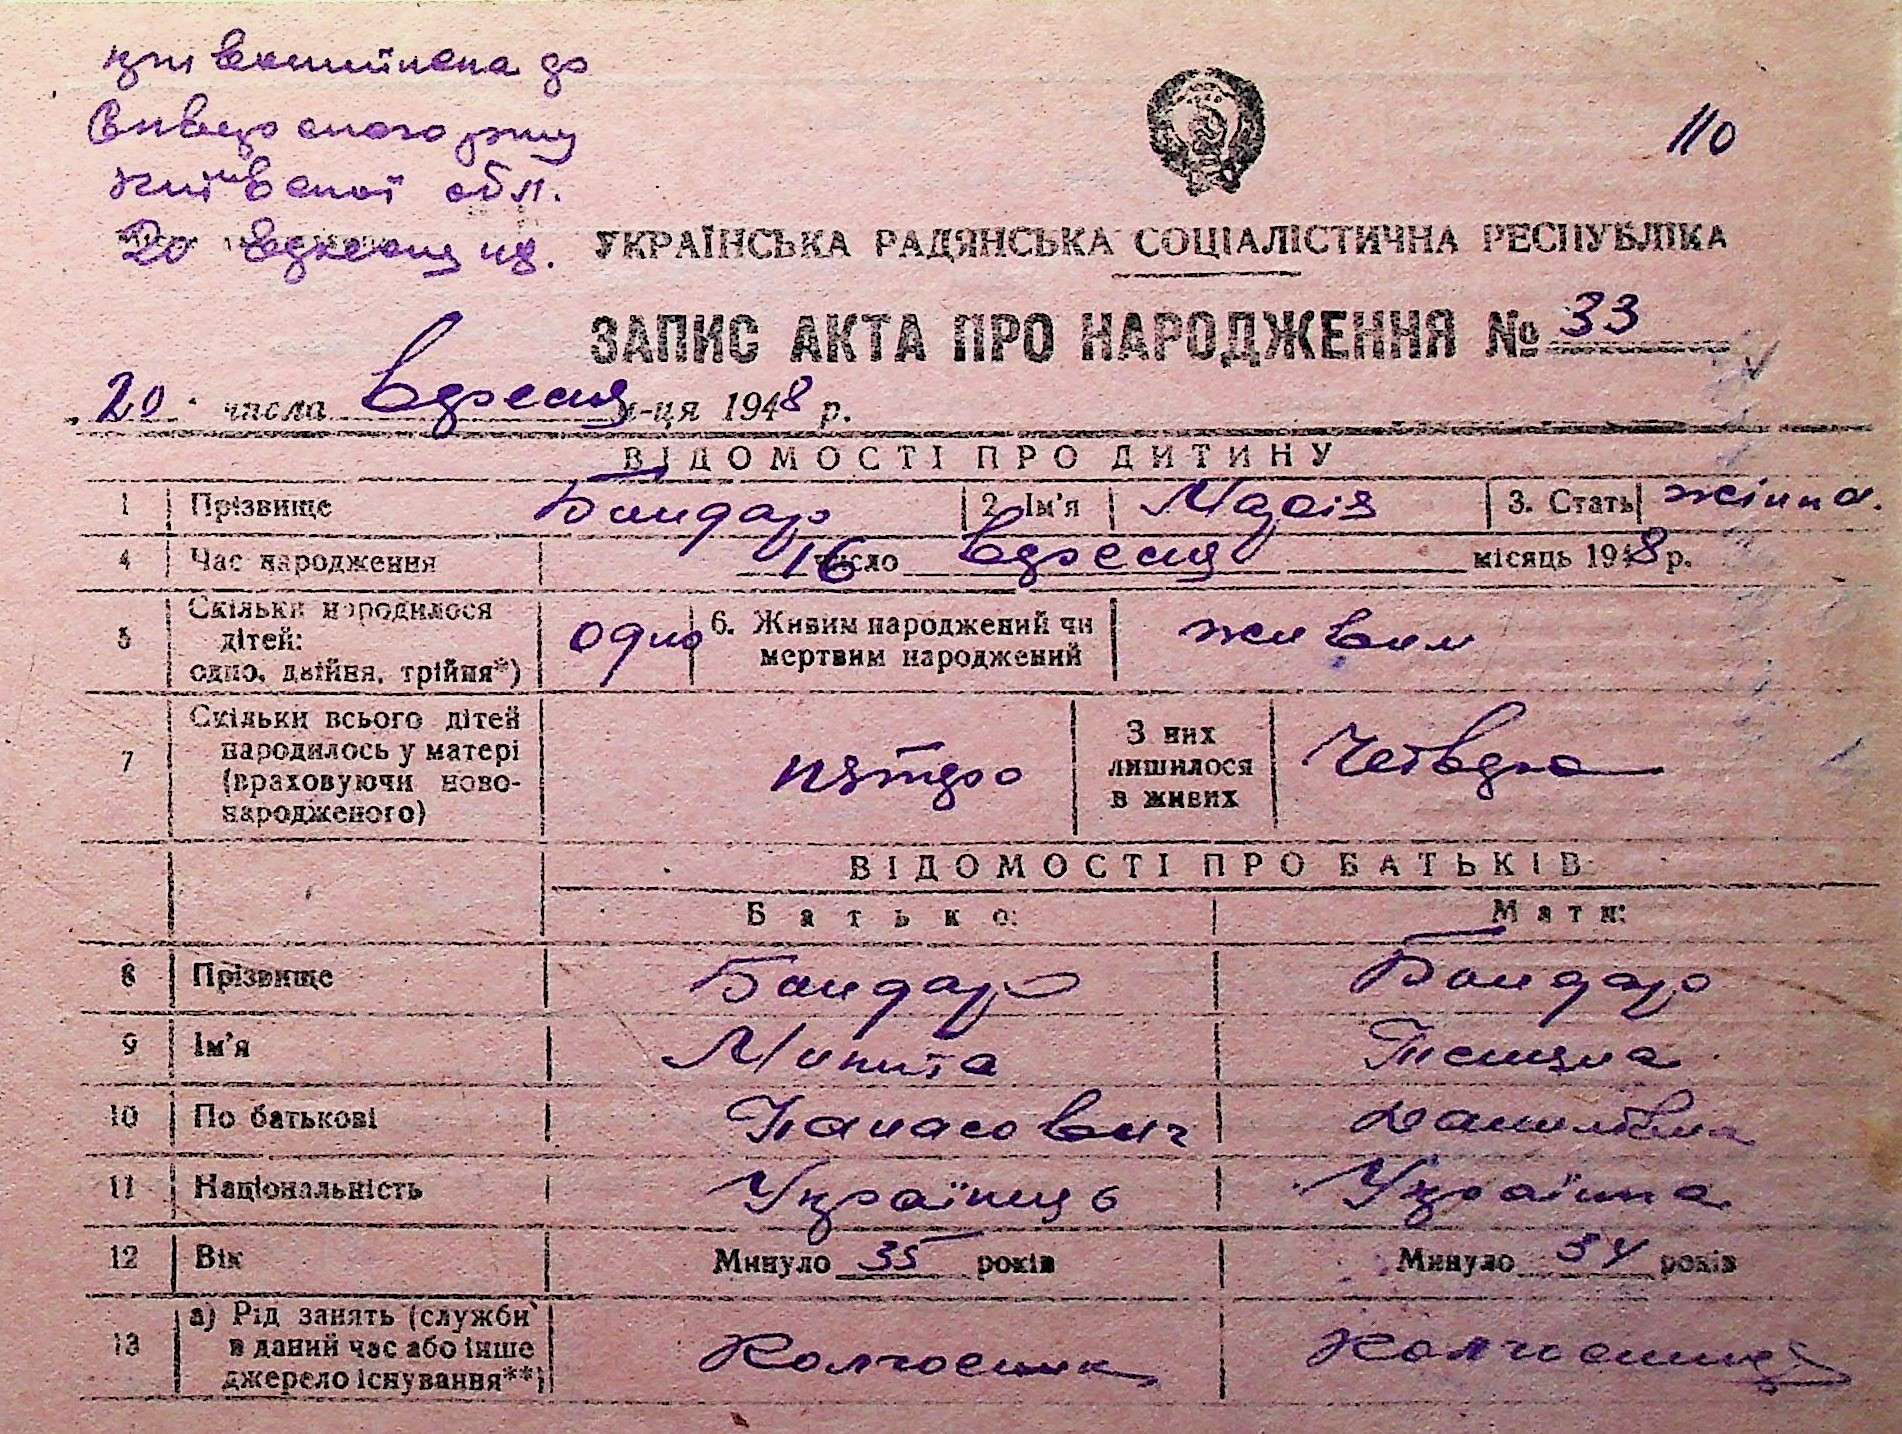 до
Київської обл.
20 вдресня
110
УКРАЇНСЬКА РАДЯНСЬКА СОЦІАЛІСТИЧНА РЕСПУБЛІКА
ЗАПИС АКТА ПРО НАРОДЖЕННЯ № 33
20 числа вдресня м-ця 1948 р.
ВІДОМОСТІ ПРО ДИТИНУ
1 Прізвище Бондар 2. Ім'я Марія 3. Стать жіноча.
4 Час народження 16 число вдресня місяць 1948 р.
5 Скільки народилося дітей: одно, двійня, трійня*) одно 6. Живим народжений чи мертвим народжений живим
7 Скільки всього дітей народилось у матері (враховуючи новонародженого) пятеро З них лишилося в живих Четверо
ВІДОМОСТІ ПРО БАТЬКІВ
Батько: Мати:
8 Прізвище Бондар Бондар
9 Ім'я Микита
10 По батькові Панасович Данилівна
11 Національність Українець Українка
12 Вік Минуло 35 років Минуло 34 років
13 а) Рід занять (служби в даний час або інше джерело існування**) Колгосник Колгосниця